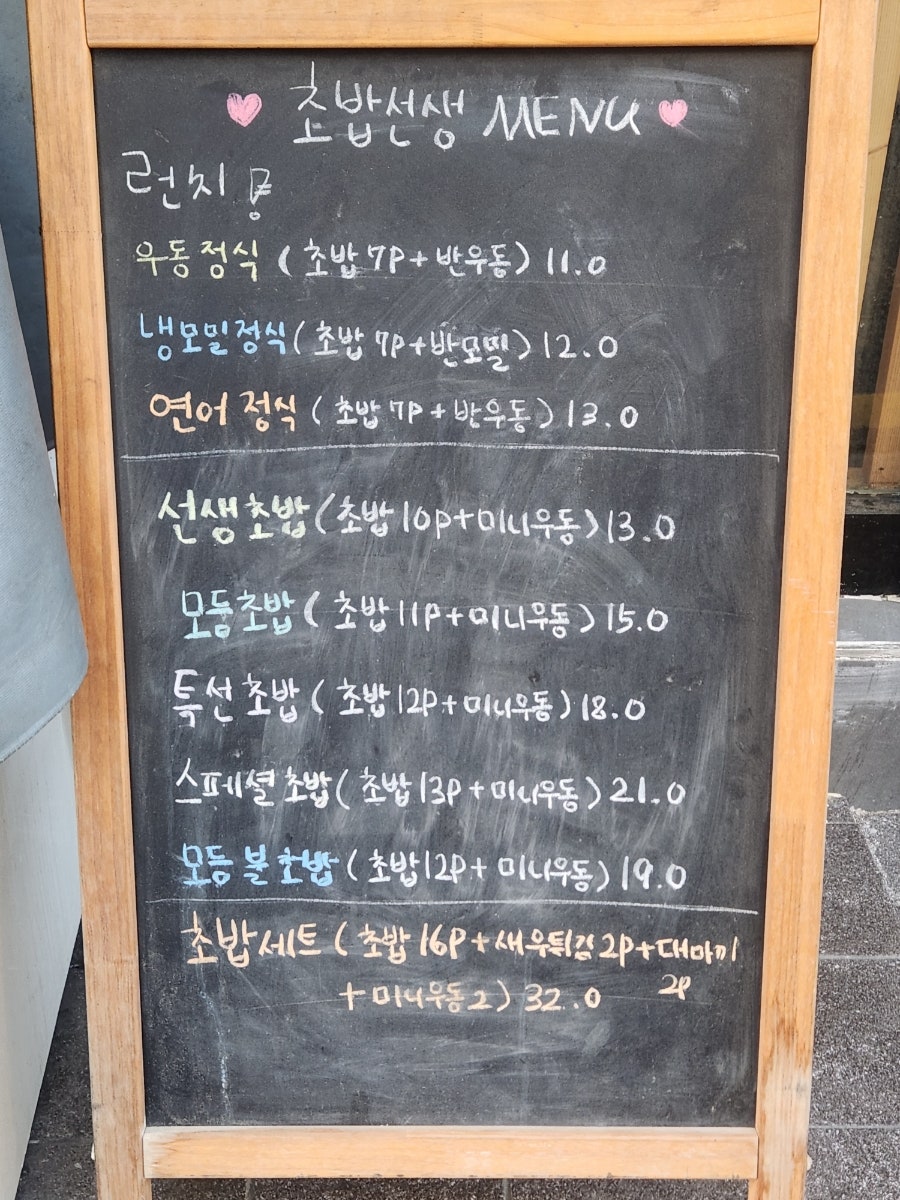 초밥선생 MENU
런치
우동정식 (초밥 7P + 반우동) 11.0
냉모밀정식 (초밥 7P + 반모밀) 12.0
연어정식 (초밥 7P + 반우동) 13.0
선생초밥 (초밥 10P + 미니우동) 13.0
모둠초밥 (초밥 11P + 미니우동) 15.0
특선초밥 (초밥 12P + 미니우동) 18.0
스페셜초밥 (초밥 13P + 미니우동) 21.0
모듬불초밥 (초밥 12P + 미니우동) 19.0
초밥세트 (초밥 16P + 새우튀김 2P + 대마끼 2P
+ 미니우동 2) 32.0